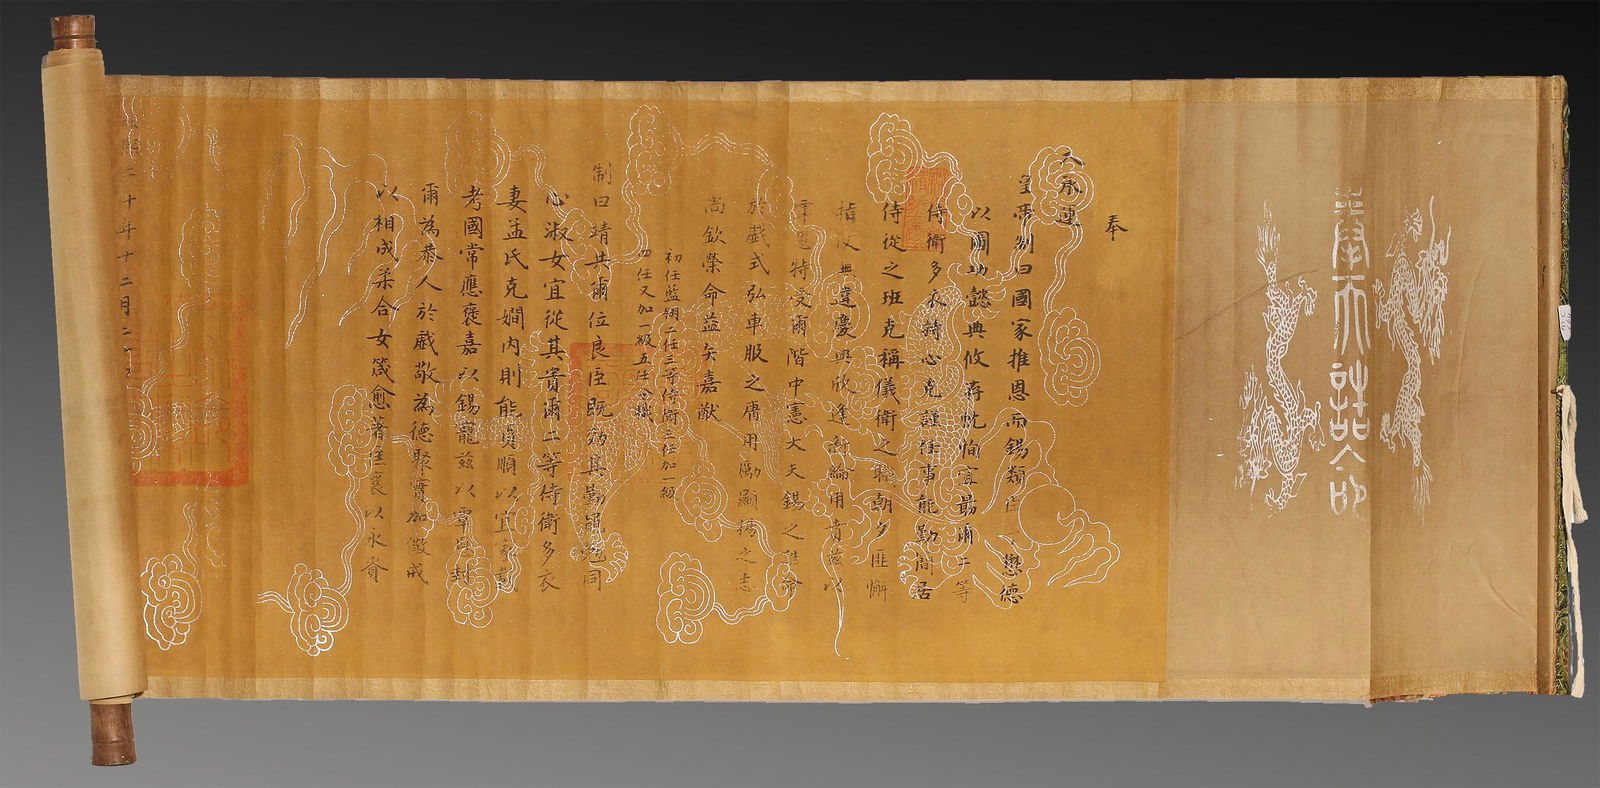 奉天誥命
奉
天承運
皇帝制曰國家推恩而錫類臣懋德
以圖功懿典攸存忱恂宜勗爾二等
侍衛多衣持心克謹任事能勤間居
侍從之班克稱儀衛之職朝夕匪懈
指使典達慶典欣逢新綸用賁茲以
覃恩特受爾階中憲大夫錫之誥命
於戲式弘車服之庸用勵顯揚之志
尚欽榮命益矢嘉猷
初任藍翎二任三等侍衛三任加一級
四任又加一級五任今職
制曰靖共爾位良臣既効其勤黽勉同
心淑女宜從其貴爾二等侍衛多衣
妻孟氏克嫺內則能貞順以宜家
考國常應褒嘉以錫寵茲以覃恩封
爾為恭人於戲敬為德聚實加儆戒
以相成柔合女箴愈著匡襄以永賚
二十年十二月二十